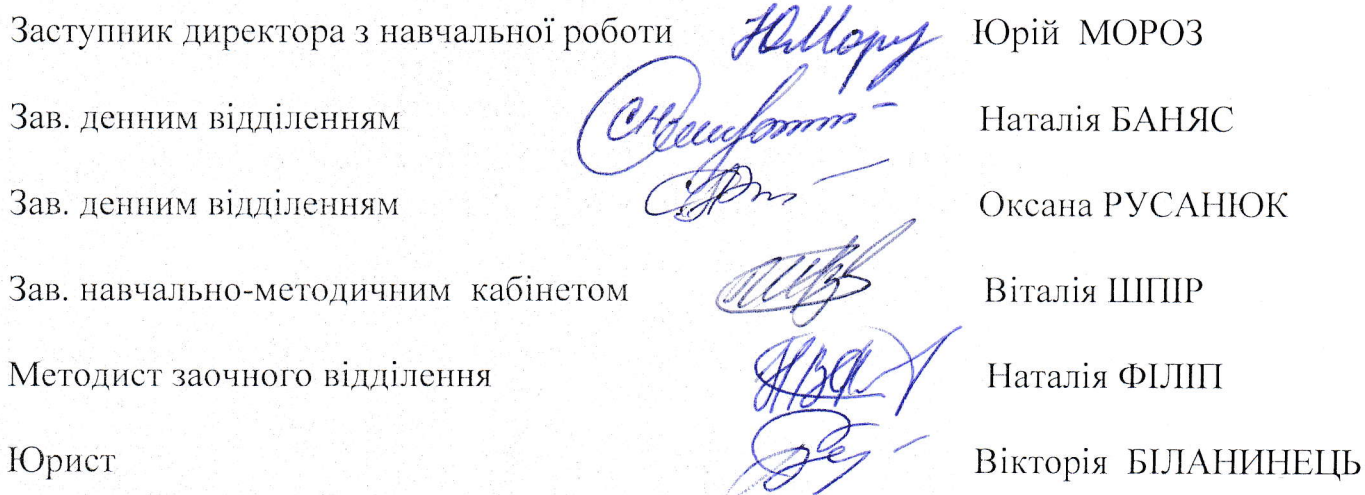 Заступник директора з навчальної роботи Юрій МОРОЗ
Зав. денним відділенням Наталія БАНЯС
Зав. денним відділенням Оксана РУСАНЮК
Зав. навчально-методичним кабінетом Віталія ШПІР
Методист заочного відділення Наталія ФІЛІП
Юрист Вікторія БІЛАНИНЕЦЬ